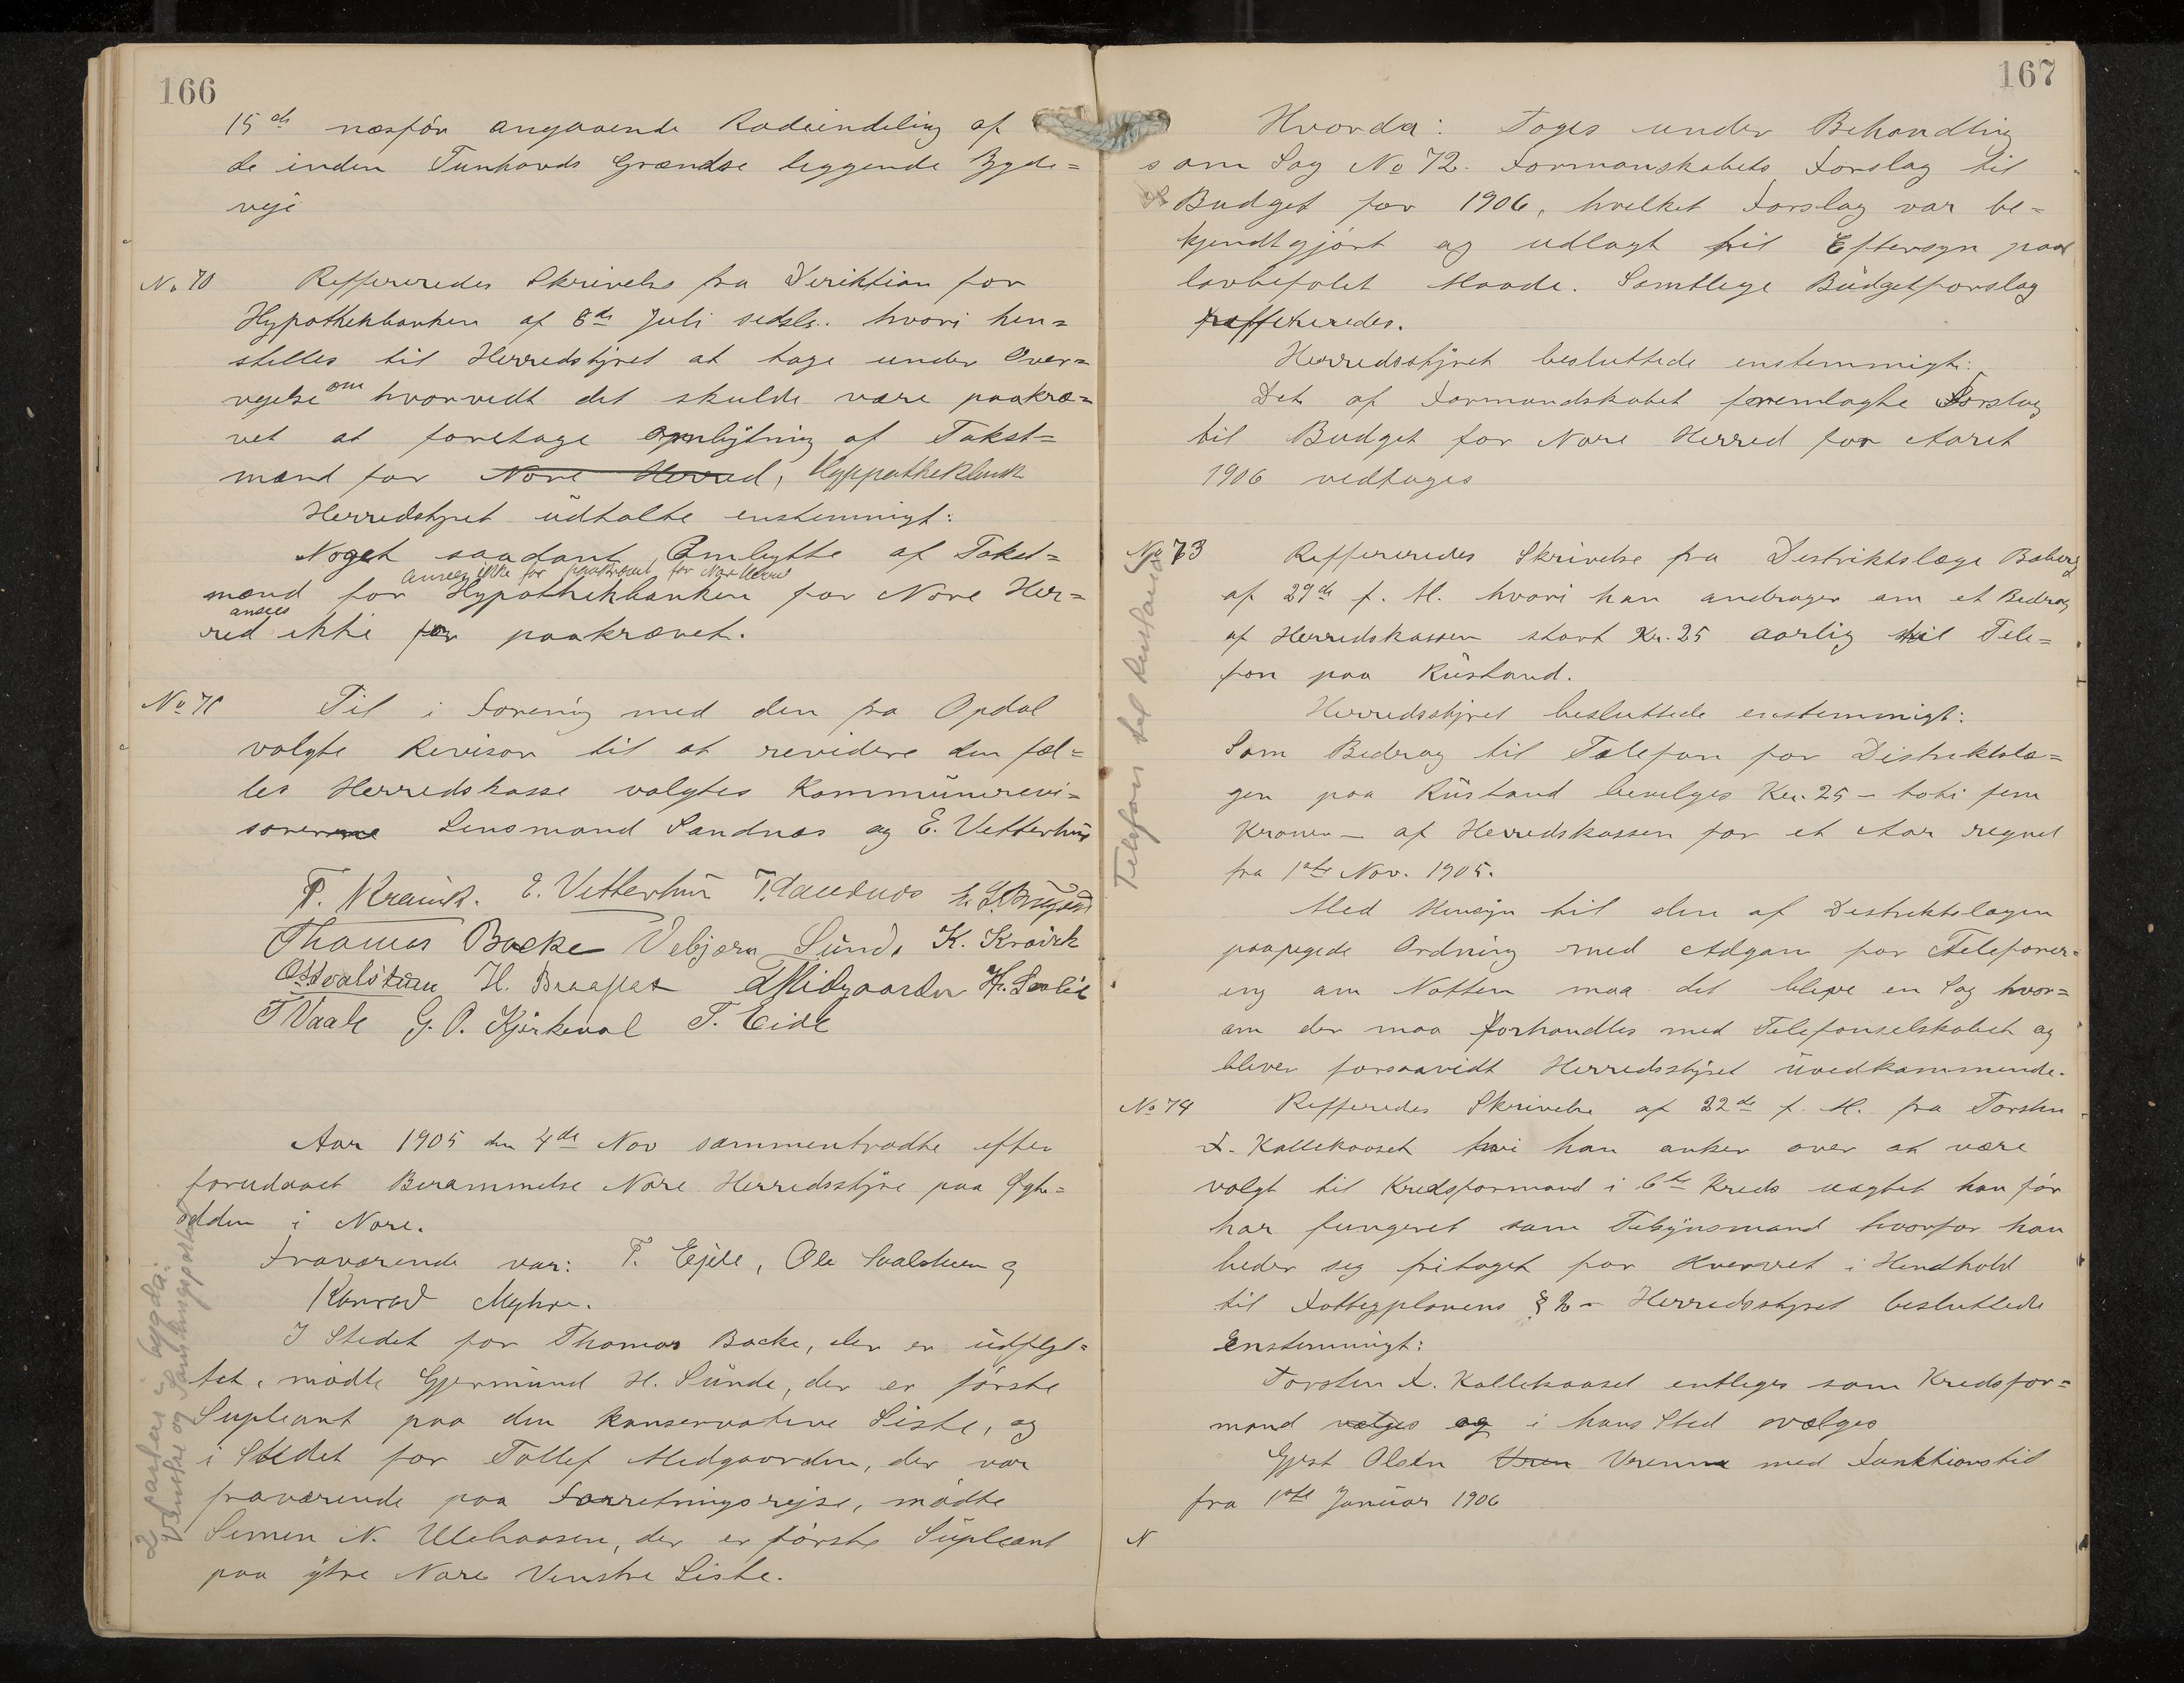 166
15de næsför angaaende Rodeinndeling af
de inden Tunhovds Grændse liggende Bygde=
veje
No 70 Reffereredes Skrivelse fra Direktion for
Hypothekbanken af 8de Juli sidstl. hvori hen=
stilles til Herredstyret at tage under Over=
veielse om hvorvidt det skulde være paakræ=
vet at foretage ombytning af Takst=
mænd for Nore Herred, Hyppothekbank
Herredstyret udtalte enstemmigt:
Noget saadant Ombytte af Takst=
ansees ikke for paakrævet for Nore Herred
mænd for Hypothekbanken for Nore Her=
ansees
red ikke for paakrævet.
No 71 Til i Forening med den fra Opdal
valgte Revisor til at revidere den fæl=
les Herredskasse valgtes Kommunerevi=
sorerne Lensmand Sandnæs og E. Vetterhus
T. Kravik. E. Vetterhus T. Sandnæs
Thomas Backe Vebjørn Sunde K. Kravik
O. Svalsteen H. T. Midgaarden H.
T Vaale G. O. Kjirkevol T. Eide
Aar 1905 den 4de Nov sammentraadte efter
forudgaaet Berammelse Nore Herredsstyre paa
odden i Nore.
Fraværende var: T. Ejde, Ole Svalsteen og
Konrad Myhre.
I Stedet for Thomas Backe, der er udflyt=
tet, mødte Gjermund H. Sunde, der er förste
Supleant paa den konservative Liste, og
i Stedet for Tollef Midgaarden, der var
fraværende paa Forretningsrejse, mödte
Simen N. Ulehaasen, der er förste Supleant
paa ytre Nore Venstre Liste.
2 partier i bygda:
Venstre og Samlingspartiet
167
Hvorda: Toges under Behandling
som Sag No 72. Formanskabets Forslag til
Budget for 1906, hvilket Forslag var be=
kjendtgjört og udlagt til Eftersyn paa
lovbefalet Maade. Samtlige Budgetforslag
reffereredes.
Herredsstyret besluttede enstemmigt:
Det af Formandskabet fremlagte Forslag
til Budget for Nore Herred for Aaret
1906 vedtages
No 73 Reffereredes Skrivelse fra Distriktslæge Boberg
af 29de f. M. hvori han andrager om et Bidrag
af Herredskassen stort Kr. 25 aarlig til Tele=
fon paa Rustand.
Herredsstyret besluttede enstemmigt:
Som Bidrag til Telefon for Distriktslæ=
gen paa Rustand bevilges Kr. 25 – toti fem
Kroner – af Herredskassen for et Aar regnet
fra 1ste Nov. 1905.
Med Hensyn til den af Distriktslægen
paapegede Ordning med Adgan for Telefoner=
ing om Natten maa det blive en Sag hvor=
om der maa forhandles med Telefonselskabet og
bliver forsaavidt Herredsstyret uvedkommende.
Telefon til Rustand
No 74 Refferedes Skrivelse af 22de f. M. fra Torsten
T. Kallekaaset hvori han anker over at være
valgt til Kredsformand i 6te Kreds uagtet han för
har fungeret som Tilsynsmand hvorfor han
beder sig fritaget for Hvervet i Hendhold
til Fattigplanens § 2 – Herredsstyret besluttede
Enstemmigt:
Torsten T. Kallekaaset entleges som Kredsfor=
mand vælges og i hans Sted vælges
Gjest Olsen Vrenne med Funktionstid
fra 1ste Januar 1906
N